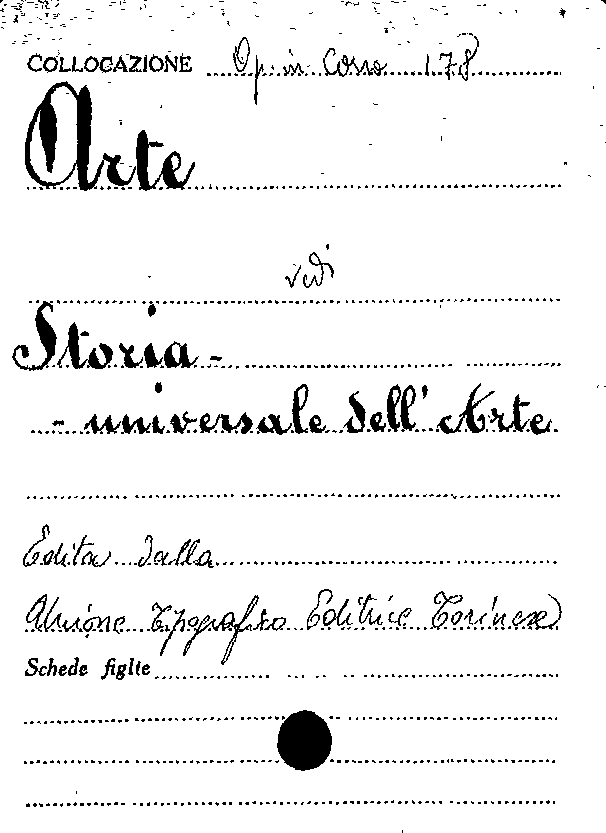 COLLOCAZIONE Op. in Corso 178
Arte
vedi
Storia -
- universale dell'Arte
Edita dalla
Unione Tipografico Editrice Torinese
Schede figlie